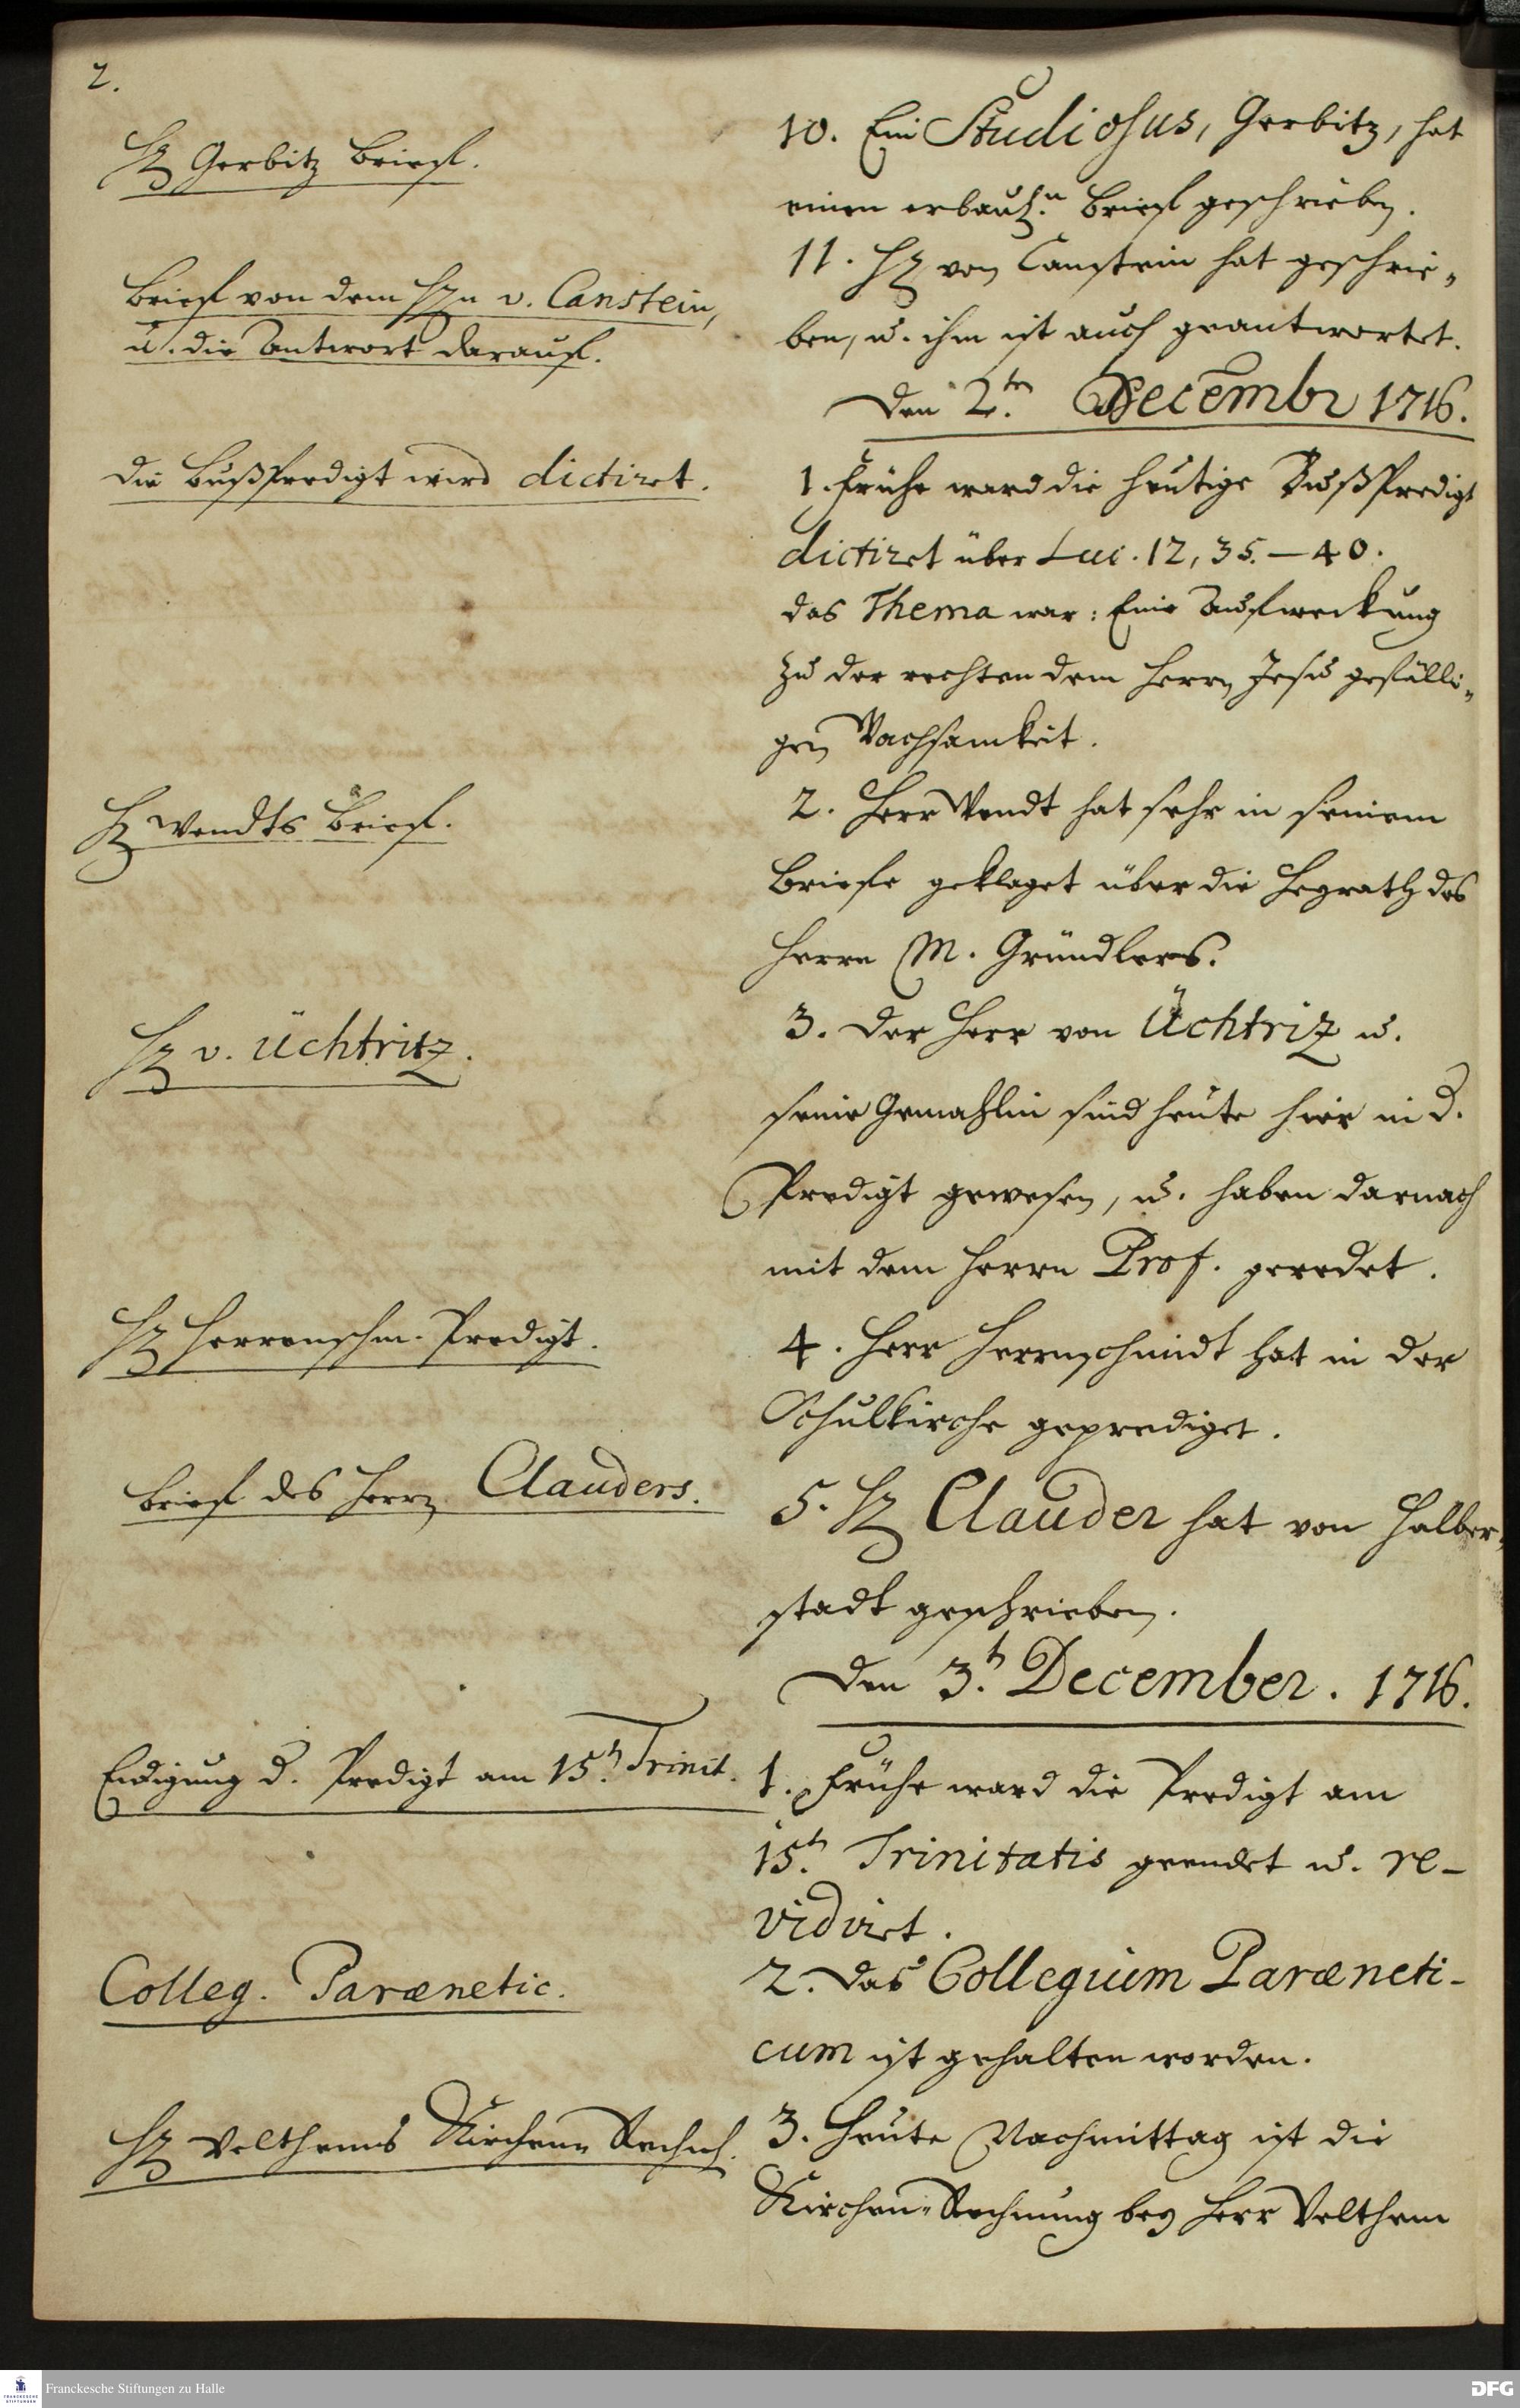 2.
H. Gerbitz Brief.
10. Ein Studiosus, Gerbitz, hat
einen erbaul.n Brief geschrieben.
Brief von dem H.n v. Canstein,
u. die Antwort darauf.
11. H. von Canstein hat geschrie-
ben, u. ihm ist auch geantwortet.
Den 2.ten Decembr 1716.
Die Bußpredigt wird dictiret.
1. Frühe ward die heutige Bußpredigt
dictiret über Luc. 12, 35.–40.
das Thema war: Eine Aufweckung
zu der rechten dem Herrn Jesu gefälli-
gen Wachsamkeit.
H. Wendts Brief.
2. Herr Wendt hat sehr in seinem
Briefe geklaget über die Heyrath des
Herrn M. Gründlers.
H. v. Üchtritz.
3. Der Herr von Üchtriz u.
seine Gemahlin sind heute hier in d.
Predigt gewesen, u. haben darnach
mit dem Herrn Prof. geredet.
H. Herrenschm. Predigt.
4. Herr Herrnschmidt hat in der
Schulkirche geprediget.
Brief des Herrn Clauders.
5. H. Clauder hat von Halber-
stadt geschrieben.
Den 3.t December. 1716.
Endigung d. Predigt am 15.t Trinit.
1. Frühe ward die Predigt am
15.t Trinitatis geendet u. re-
vidiret.
Colleg. Parænetic.
2. Das Collegium Paræneti-
cum ist gehalten worden.
H. Veltheims Kirchen-Rechn.
3. Heute Nachmittag ist die
Kirchen-Rechnung bey Herr Velthem
Franckesche Stiftungen zu Halle
DFG